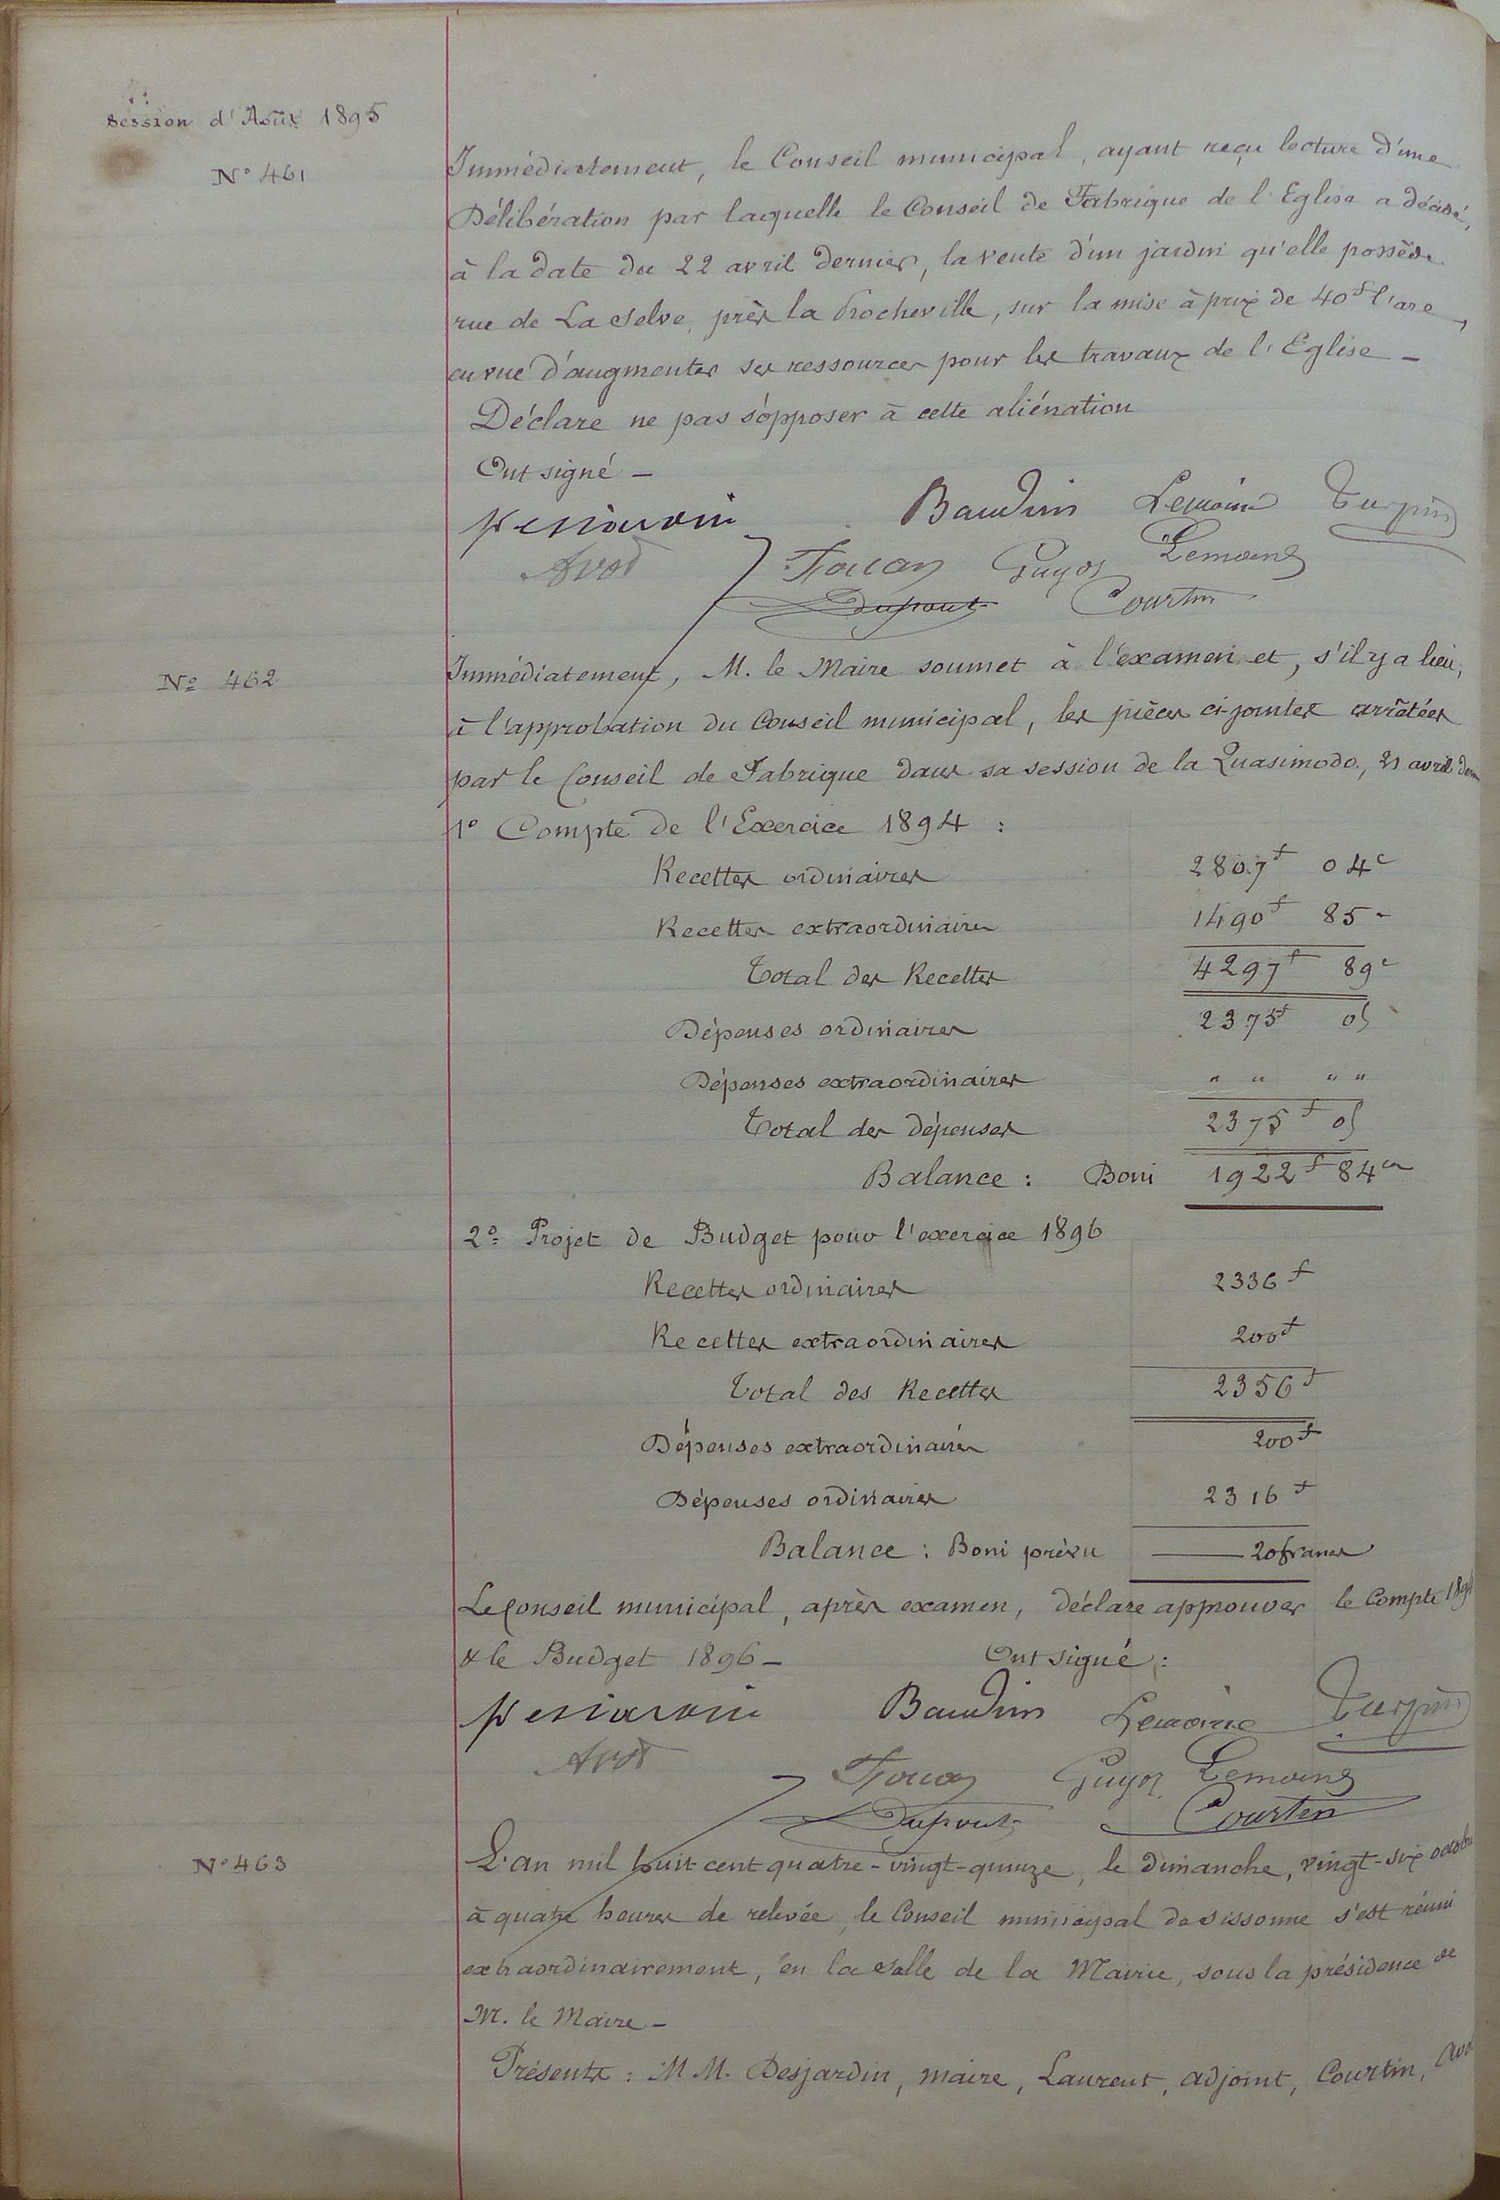 Session d'Août 1895
N° 461
Immédiatement, le Conseil municipal, ayant reçu lecture d'une
Délibération par laquelle le Conseil de Fabrique de l'Eglise a décidé,
à la date du 22 avril dernier, la vente d'un jardin qu'elle possède
rue de La Selve, près la Rocheville, sur la mise à prix de 40f l'are,
en vue d'augmenter ses ressources pour les travaux de l'Eglise –
Déclare ne pas s'opposer à cette aliénation
Ont signé –
Baudin Lemoine Turpin
Avot Guyot Lemoine
Dupont Courtin
N° 462
Immédiatement, M. le Maire soumet à l'examen et, s'il y a lieu,
à l'approbation du Conseil municipal, les pièces ci-jointes arrêtées
par le Conseil de Fabrique dans sa session de la Quasimodo, 21 avril
1° Compte de l'Exercice 1894 :
Recettes ordinaires 2807f 04c
Recettes extraordinaires 1490f 85 -
Total des Recettes 4297f 89c
Dépenses ordinaires 2375f 05
Dépenses extraordinaires " " " "
Total des dépenses 2375f 05
Balance : Boni 1922f 84c
2° Projet de Budget pour l'exercice 1896
Recettes ordinaires 2336f
Recettes extraordinaires 200f
Total des Recettes 2356f
Dépenses extraordinaires 200f
Dépenses ordinaires 2316f
Balance : Boni prévu — 20 francs
Le Conseil municipal, après examen, déclare approuver le Compte 1894
& le Budget 1896 – Ont signé :
Baudin Lemoine Turpin
Avot Guyot Lemoine
Dupont Courtin
N° 463
L'an mil huit cent quatre-vingt-quinze, le dimanche, vingt-six octobre
à quatre heures de relevée, le Conseil municipal de Sissonne s'est réuni
extraordinairement, en la salle de la Mairie, sous la présidence de
M. le Maire –
Présents : M M. Desjardin, maire, Laurent, adjoint, Courtin, Avot